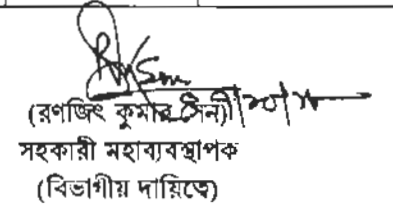 (রণজিৎ কুমার সেন)
সহকারী মহাব্যবস্থাপক
(বিভাগীয় দায়িত্বে)